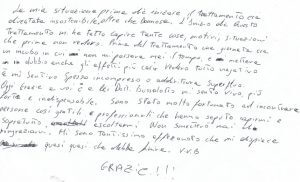 La mia situazione prima di iniziare il trattamento era
diventata insostenibile, oltre che bamosa. L'inizio di questo
trattamento mi ha fatto capire tante cose, motivi, situazioni
che prima non vedevo. Prima del trattamento una giornata era
un incubo in cui non mi passava mai il tempo, e mettevo
in dubbio anche gli affetti più cari. Vedevo tutto negativo
e mi sentivo spesso incompreso o addirittura superfluo.
Oggi grazie a voi e al Dott. mi sento vivo più
forte e indispensabile. Sono stato molto fortunato ad incontrare
persone così gentili e professionali che hanno saputo capirmi e
soprattutto ascoltarmi. Non smetterò mai di
ringraziarvi. Mi sono tantissimo affezionato che mi dispiace
quasi quasi che debba finire. V.V.B
GRAZIE!!!